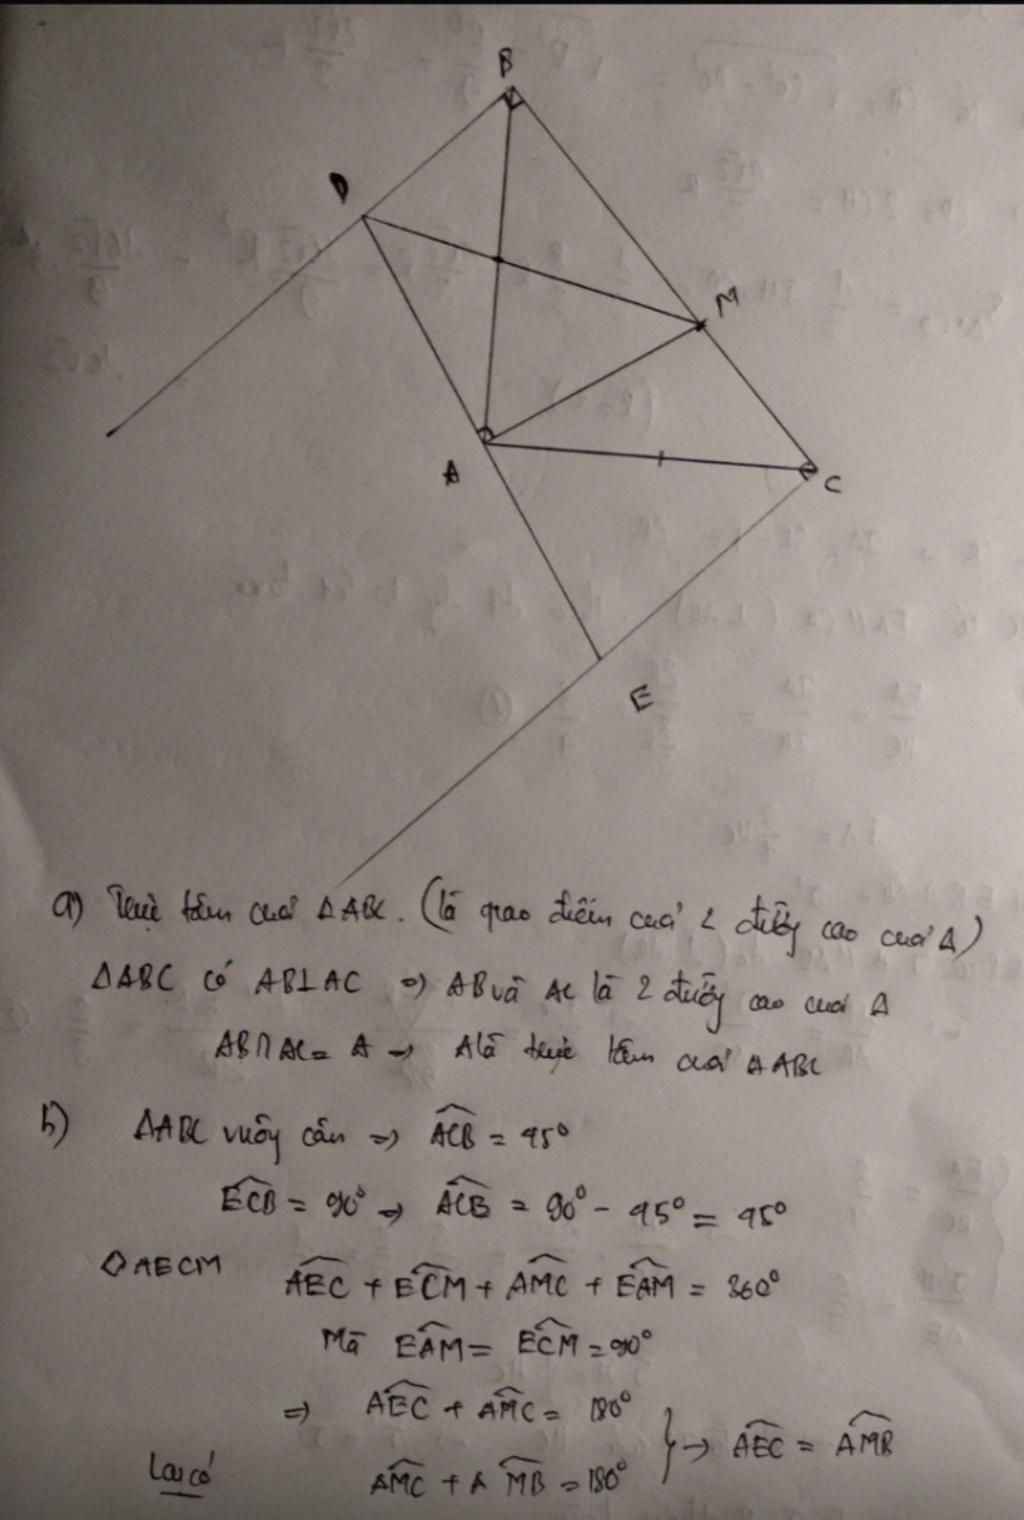 B
D
M
A
C
E
a) Trực tâm của ΔABC. (là giao điểm của 2 đường cao của Δ)
ΔABC có AB⊥AC => AB và AC là 2 đường cao của Δ
AB∩AC = A → A là trực tâm của ΔABC
b) ΔABC vuông cân => \widehat{ACB} = 45°
\widehat{ECB} = 90° → \widehat{ACB} = 90° - 45° = 45°
◇AECM \widehat{AEC} + \widehat{ECM} + \widehat{AMC} + \widehat{EAM} = 360°
Mà \widehat{EAM} = \widehat{ECM} = 90°
=> \widehat{AEC} + \widehat{AMC} = 180°
} → \widehat{AEC} = \widehat{AMB}
Lại có \widehat{AMC} + \widehat{AMB} = 180°